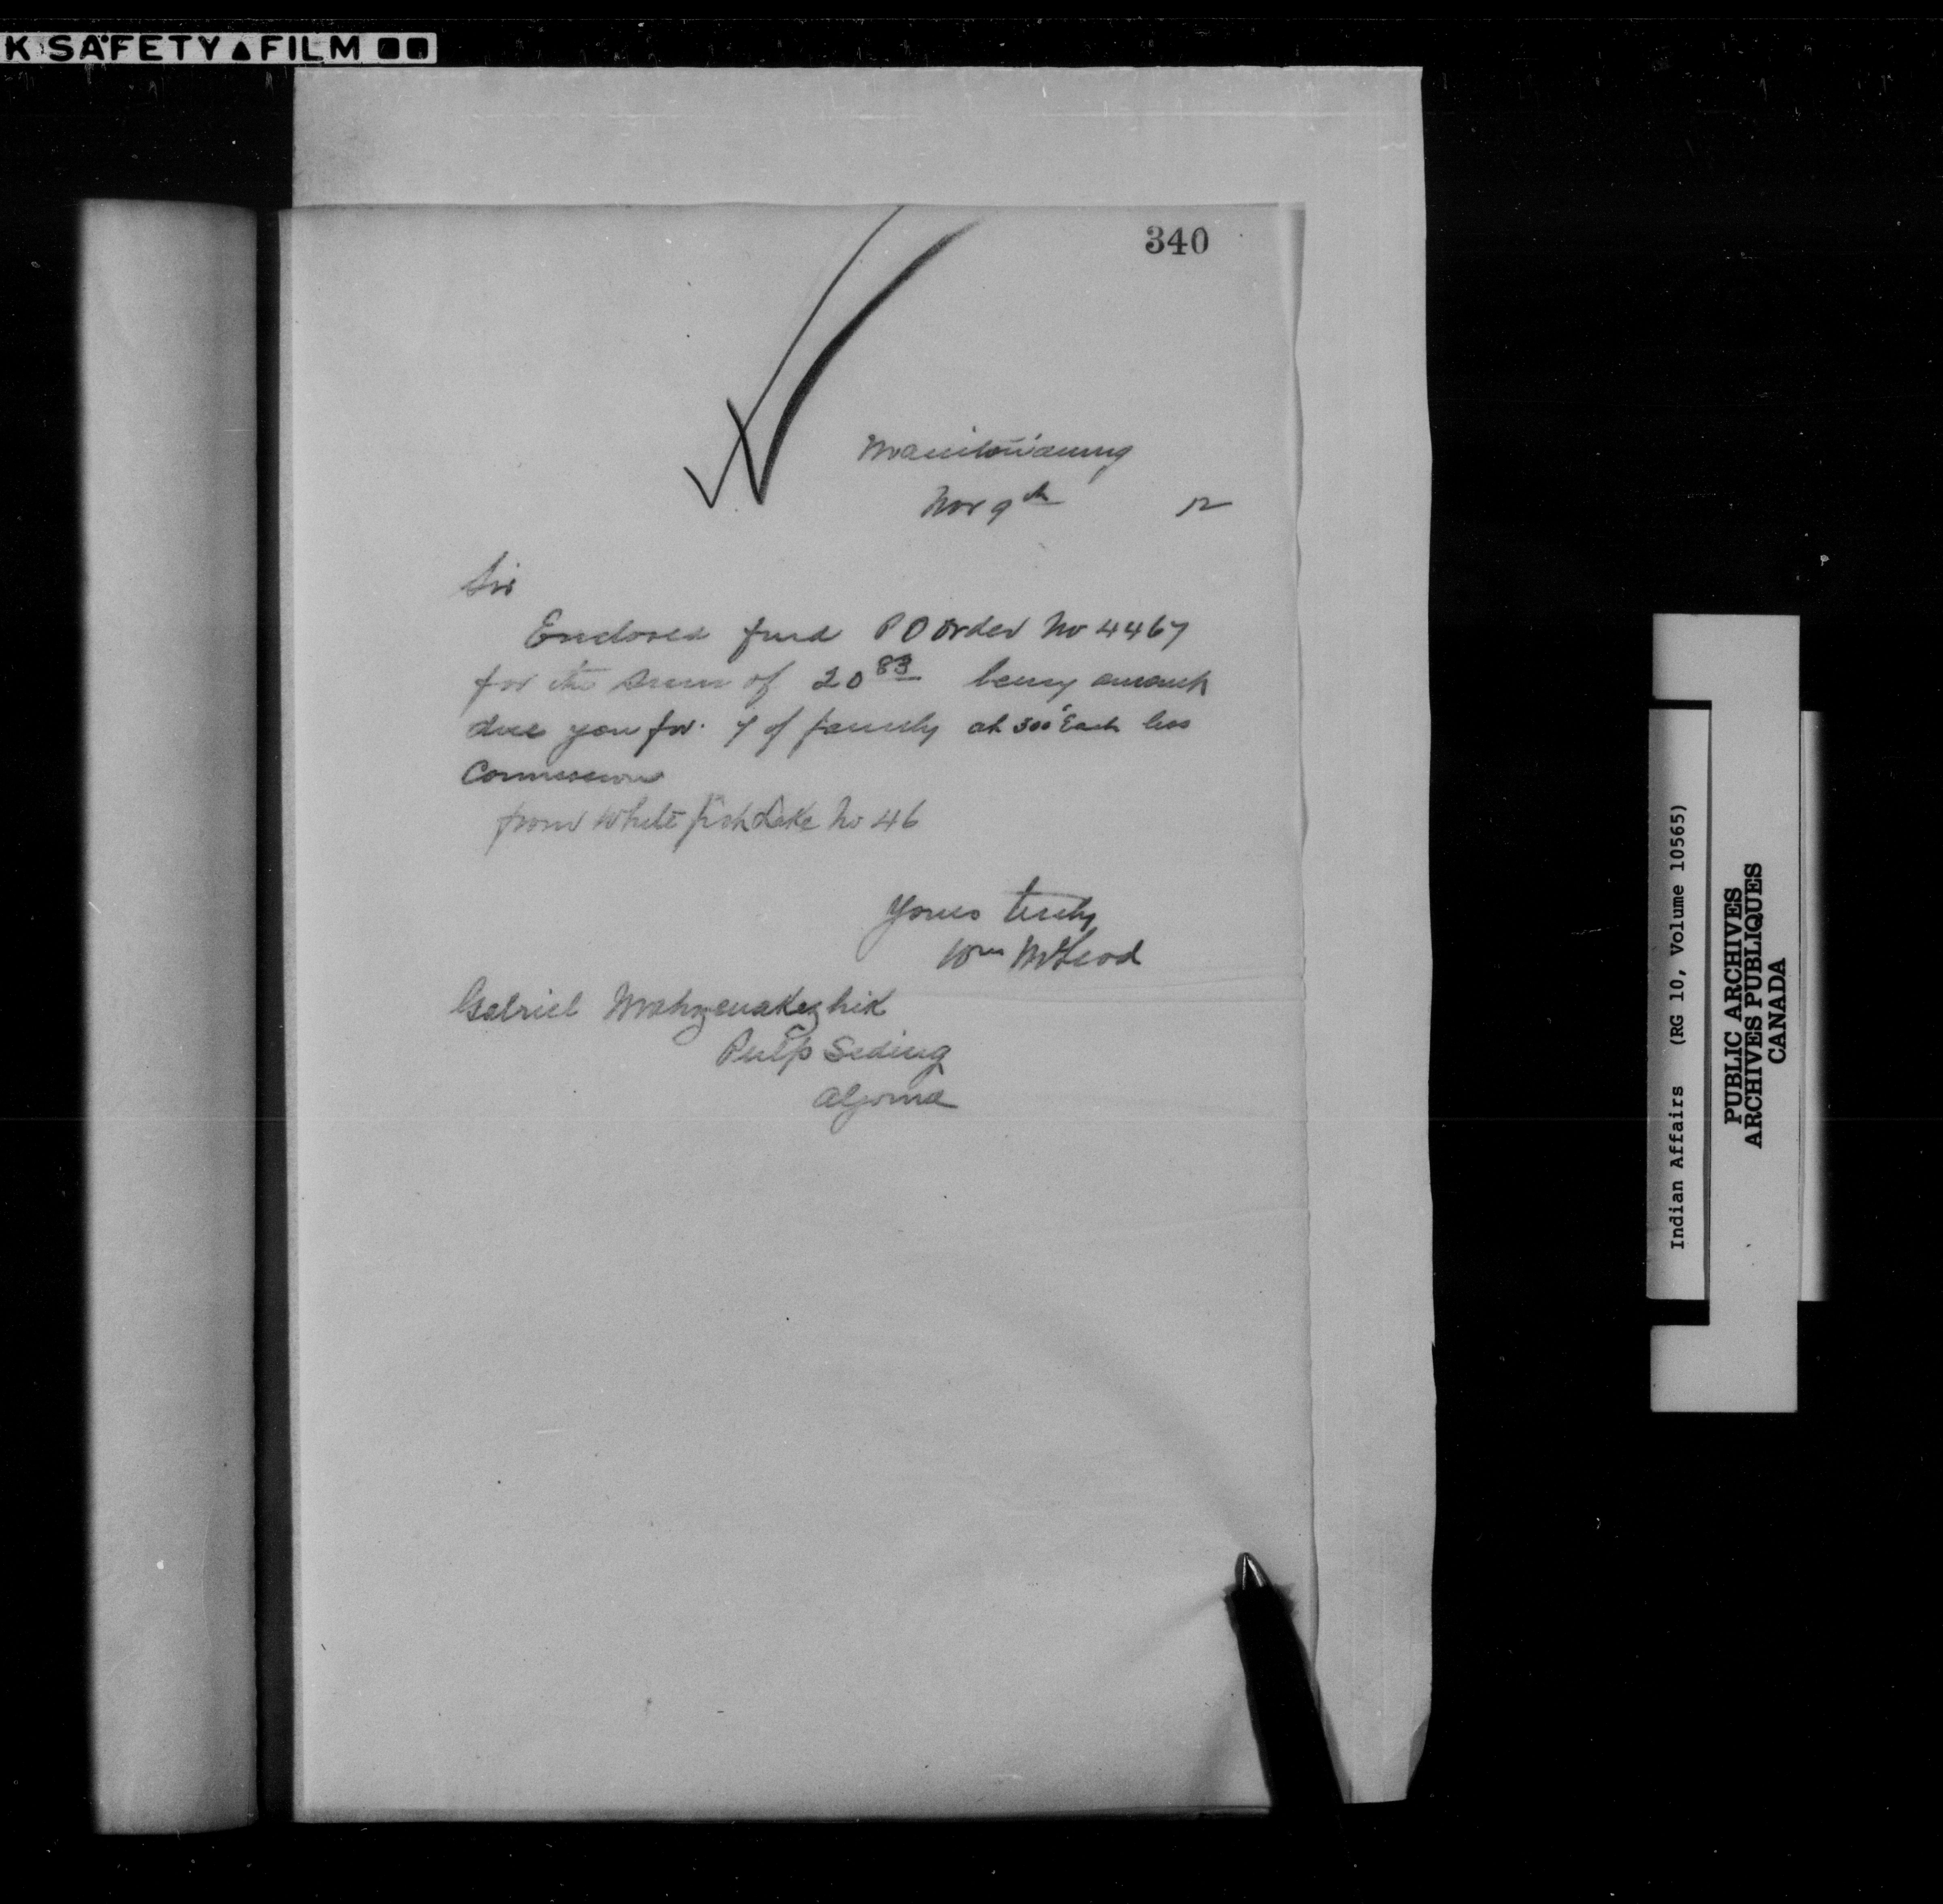 K SAFETY FILM
340
Manitowaning
Nov 9th 12
Sir
Enclosed find P O Order No 4467
for the sum of 20 83 being amount
due you for 7 of family at 300 Each less
Commission
from White fish Lake No 46
Yours truly
Wm McLeod
Gabriel
Pulp Siding
Algoma
Indian Affairs (RG 10, Volume 10565)
PUBLIC ARCHIVES
ARCHIVES PUBLIQUES
CANADA